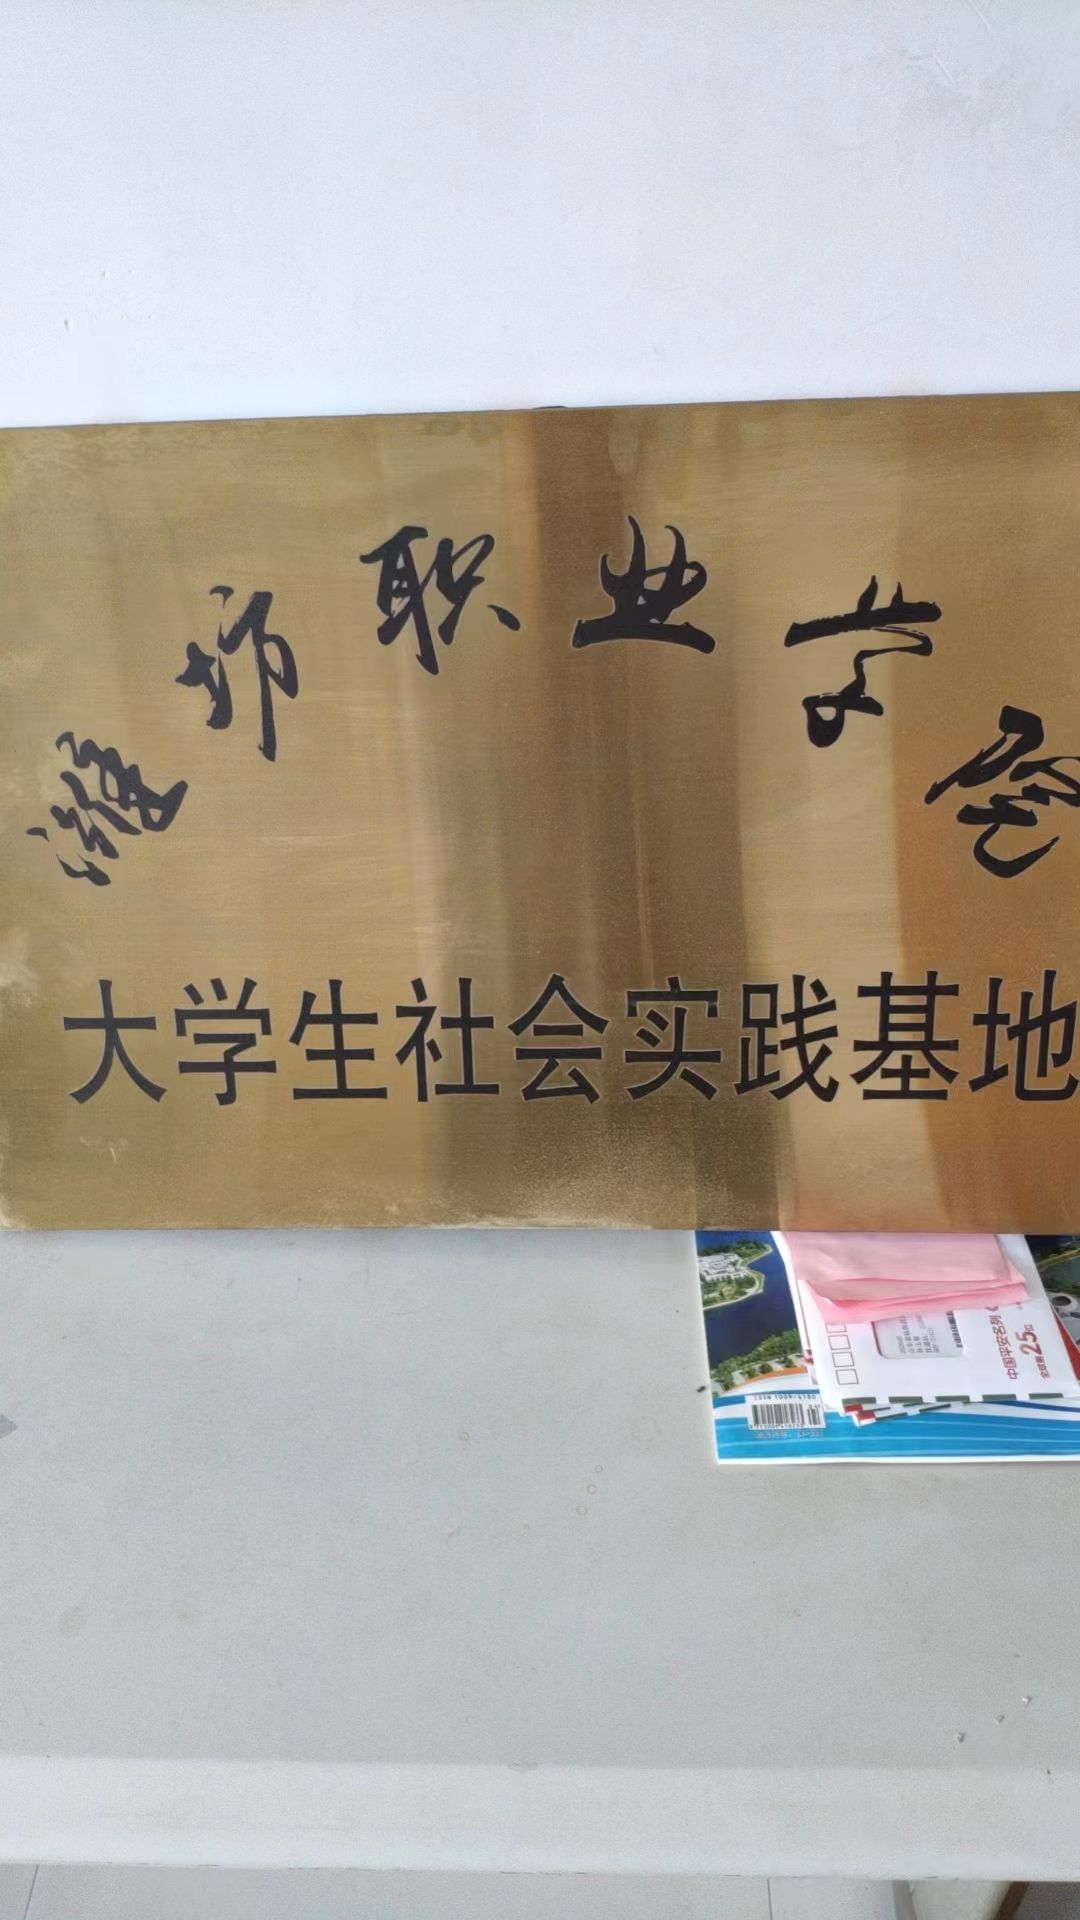 潍坊职业学院
大学生社会实践基地
中国平安名列《
全球第25位
ISSN 1009-4180